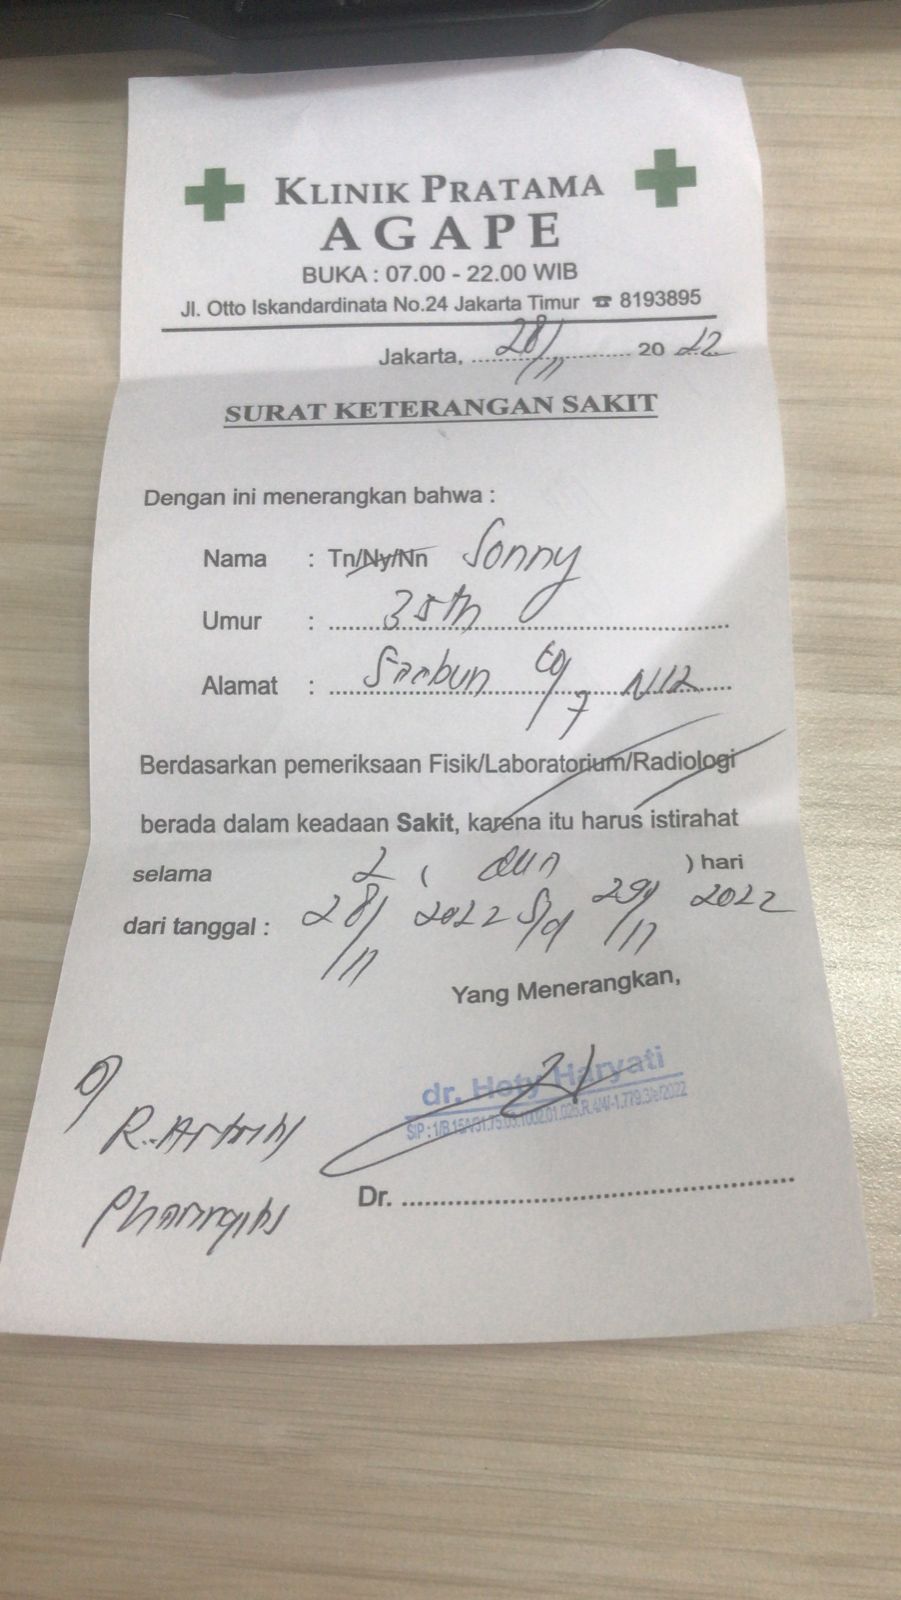 KLINIK PRATAMA
AGAPE
BUKA : 07.00 - 22.00 WIB
Jl. Otto Iskandardinata No.24 Jakarta Timur ☎ 8193895
Jakarta, 28/11 2022
SURAT KETERANGAN SAKIT
Dengan ini menerangkan bahwa :
Nama : Tn/Ny/Nn Sonny
Umur : 35th
Alamat :
Berdasarkan pemeriksaan Fisik/Laboratorium/Radiologi
berada dalam keadaan Sakit, karena itu harus istirahat
selama 2 ( dua ) hari
dari tanggal : 28/11 2022 S/d 29/11 2022
Yang Menerangkan,
dr. Hety Haryati
Dr.